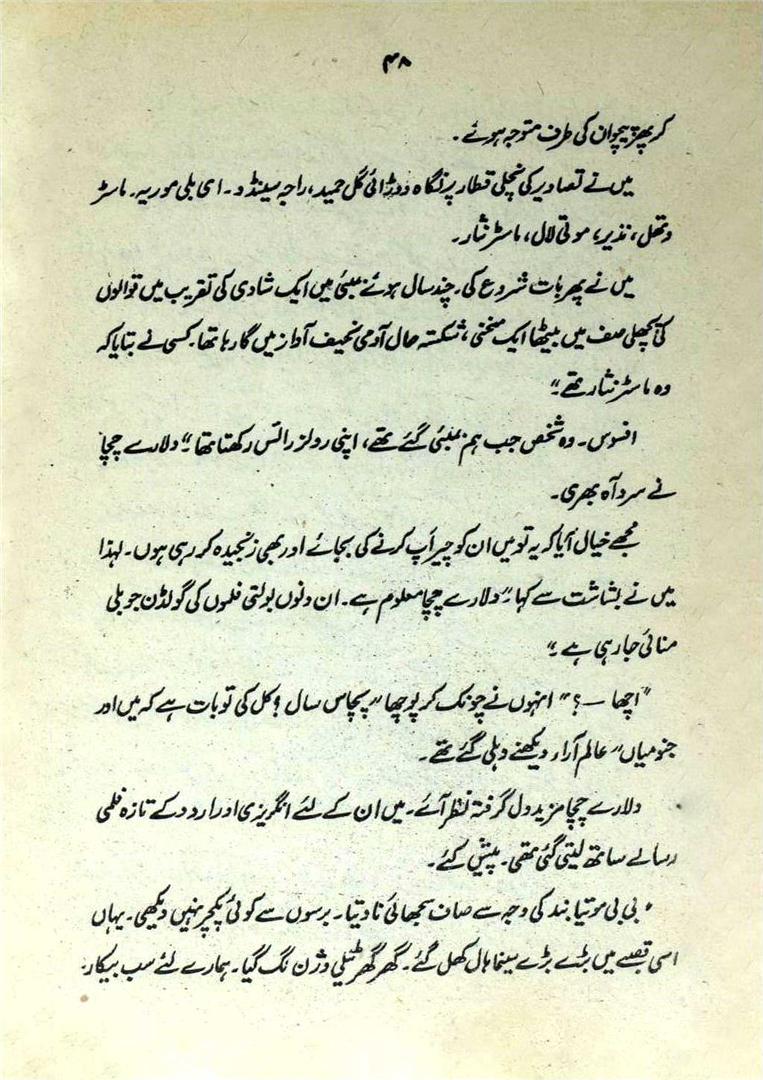 ۴۸
کر پھر پیچوان کی طرف متوجہ ہوئے۔
میں نے تصاویر کی نچلی قطار پر نگاہ دوڑائی گل حمید، راجہ سینڈو۔ ای بلی موریہ۔ ماسٹر
وٹھل، نذیر، موتی لال، ماسٹر نثار۔
میں نے پھر بات شروع کی۔ چند سال ہوئے بمبئی میں ایک شادی کی تقریب میں قوالوں
کی پچھلی صف میں بیٹھا ایک منحنی، شکستہ حال آدمی نحیف آواز میں گا رہا تھا۔ کسی نے بتایا کہ
وہ ماسٹر نثار تھے۔"
افسوس۔ وہ شخص جب ہم بمبئی گئے تھے، اپنی رولز رائس رکھتا تھا۔" دلارے چچا
نے سرد آہ بھری۔
مجھے خیال آیا کہ یہ تو میں ان کو چیر اَپ کرنے کی بجائے اور بھی رنجیدہ کر رہی ہوں۔ لہٰذا
میں نے بشاشت سے کہا۔ "دلارے چچا معلوم ہے۔ ان دنوں بولتی فلموں کی گولڈن جوبلی
منائی جا رہی ہے۔"
"اچھا —؟" انہوں نے چونک کر پوچھا "پچاس سال؟ کل کی تو بات ہے کہ میں اور
جنو میاں "عالم آراء دیکھنے دہلی گئے تھے۔
دلارے چچا مزید دل گرفتہ نظر آئے۔ میں ان کے لئے انگریزی اور اردو کے تازہ فلمی
رسالے ساتھ لیتی گئی تھی۔ پیش کئے۔
" بی بی موتیا بند کی وجہ سے صاف سجھائی نا دیتا۔ برسوں سے کوئی پکچر نہیں دیکھی۔ یہاں
اسی قصبے میں بڑے بڑے سینما ہال کھل گئے۔ گھر گھر ٹیلی وژن لگ گیا۔ ہمارے لئے سب بیکار۔